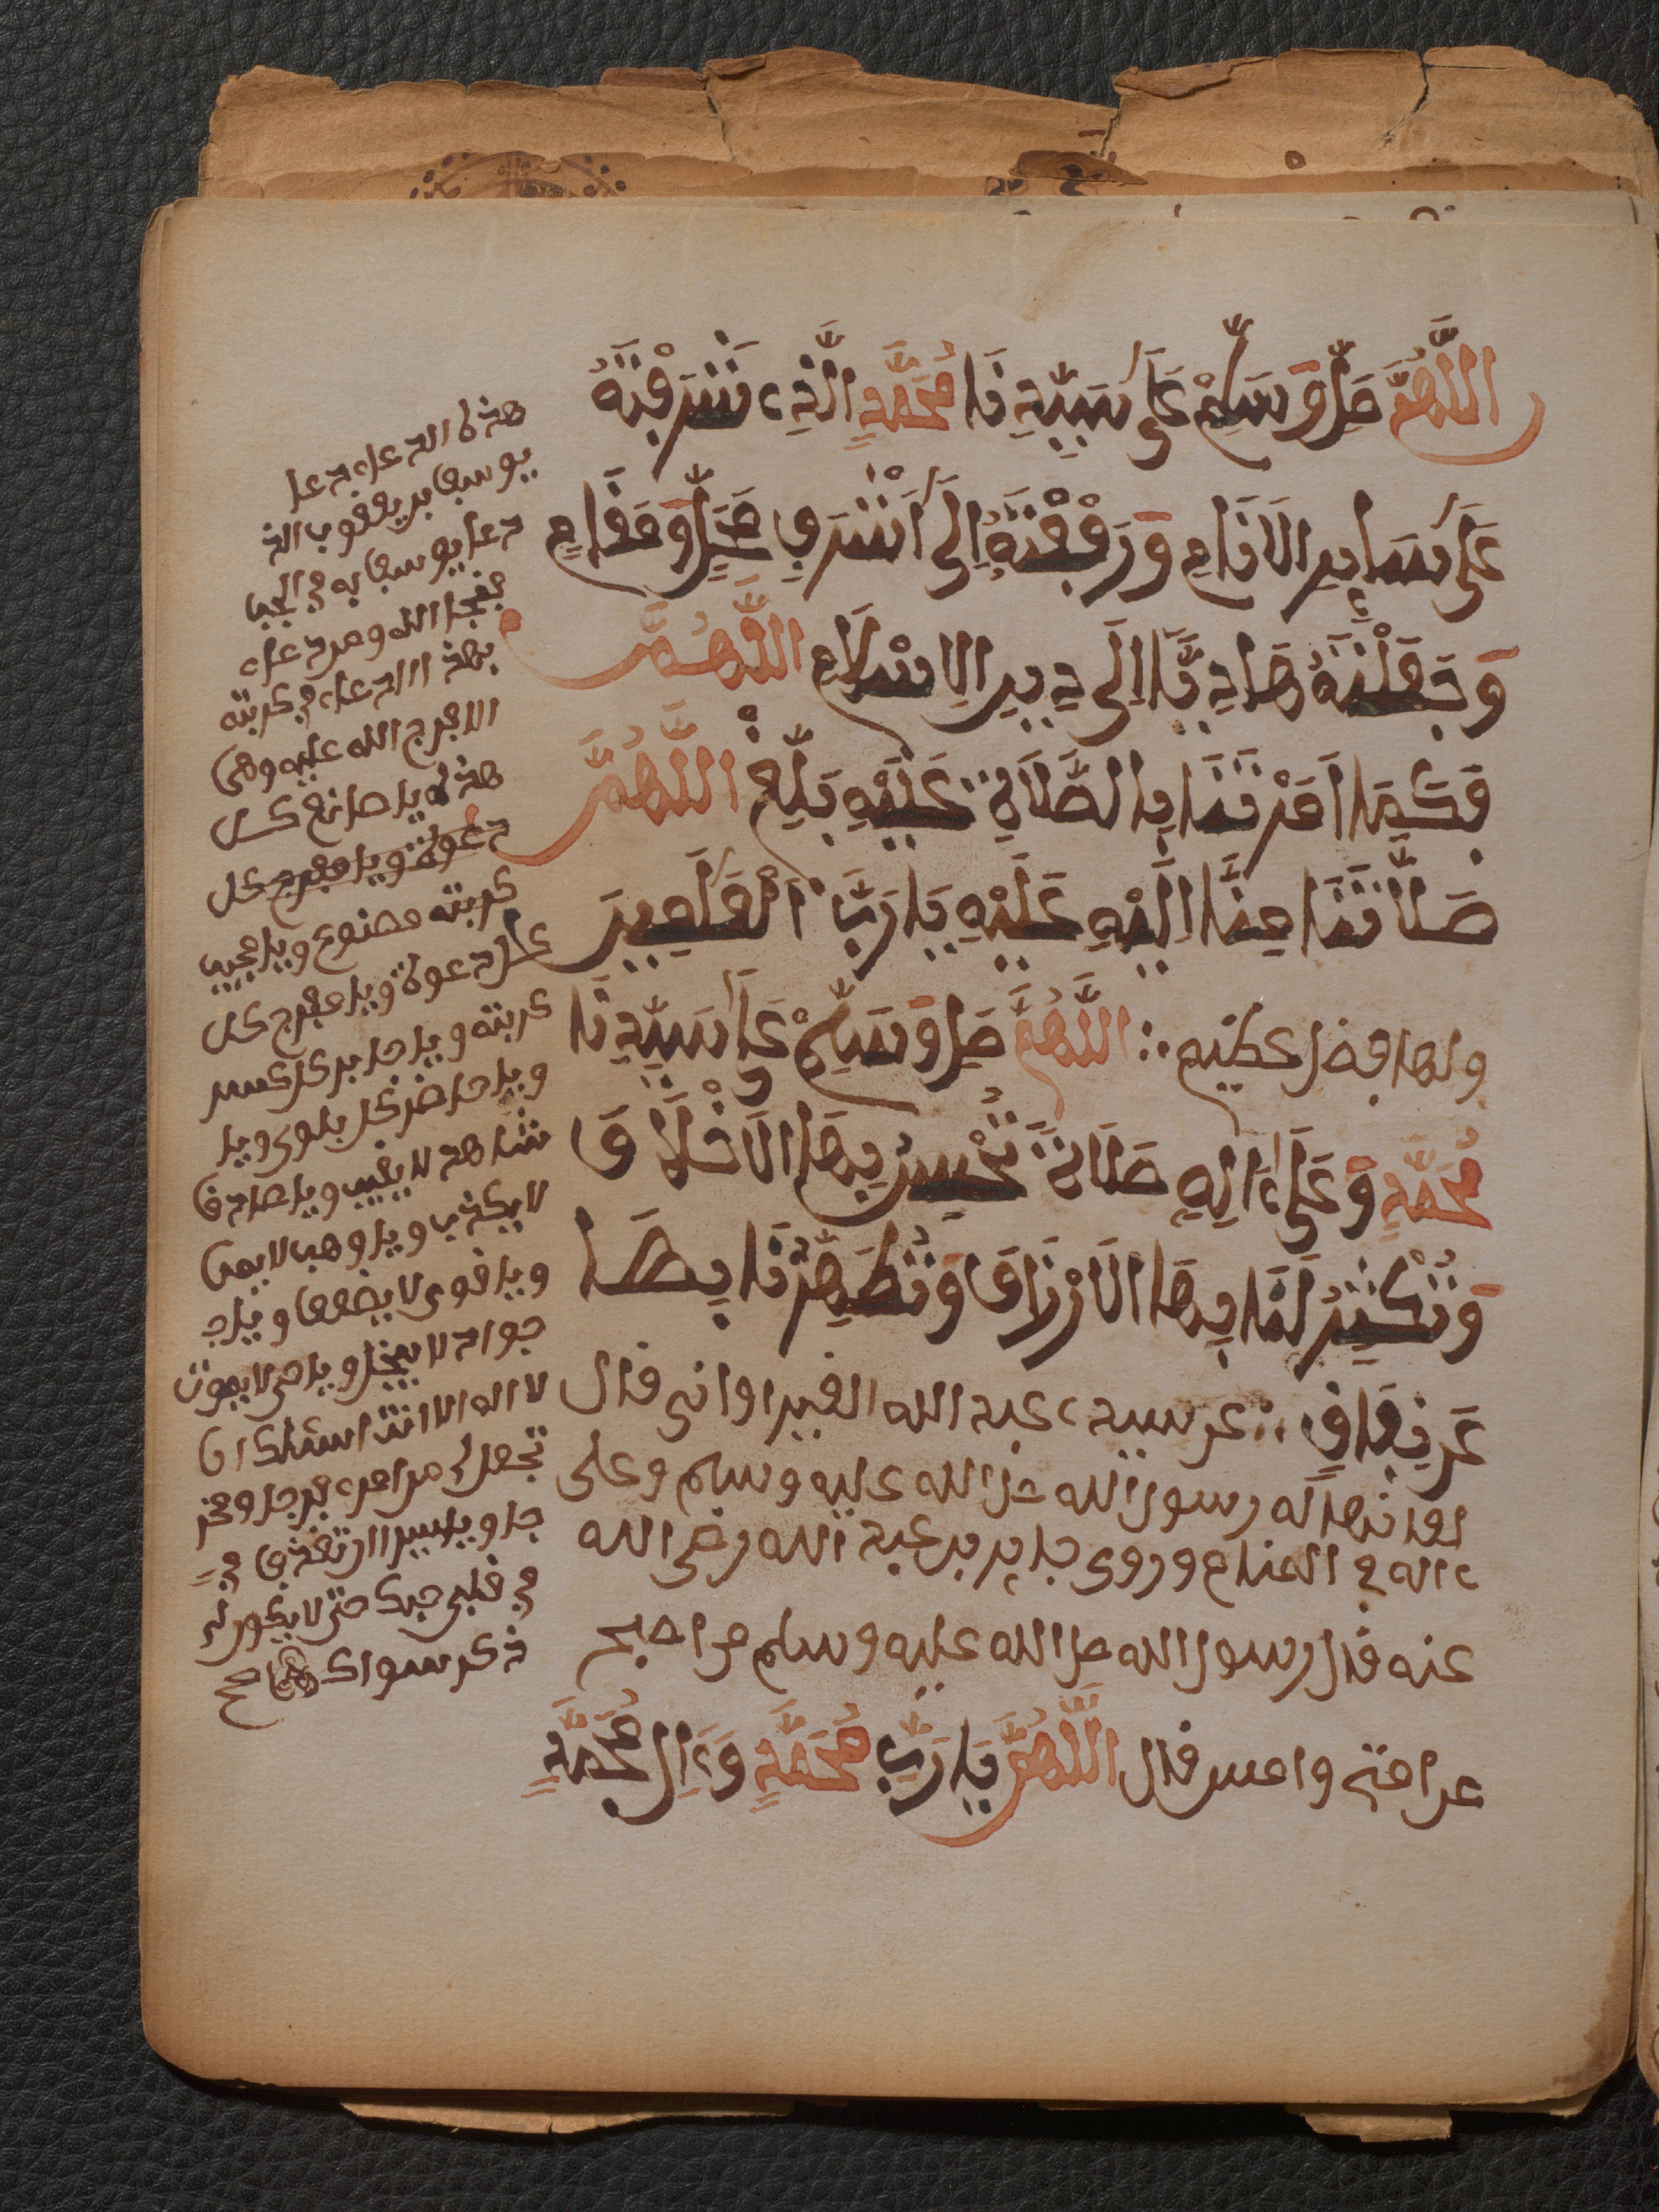 اللَّهُمَّ صَلِّ وَسَلِّمْ عَلَى سَيِّدِنَا مُحَمَّدٍ الَّذِي شَرَّفْتَهُ
عَلَى سَايِرِ الَانَامِ وَرَفَعْتَهُ إِلَى أَشْرَفِ مَحَلٍّ وَمَقَامٍ
وَجَعَلْتَهُ هَادِيًّا إِلَى دِينِ الِاسْلَامِ اللَّهُمَّ
فَكَمَا أَمَرْتَنَا بِالصَّلَاةِ عَلَيْهِ بَلِّغْ اللَّهُمَّ
صَلَاتَنَا مِنَّا إِلَيْهِ عَلَيْهِ يَا رَبَّ الْعَلَمِينَ
ولها فضل عظيم ∴ اللَّهُمَّ صَلِّ وَسَلِّمْ عَلَى سَيِّدِنَا
مُحَمَّدٍ وَعَلَى ءَالِهِ صَلَاةً تُحْسِنُ بِهَا الَاخْلَاقَ
وَتُكْثِرُ لَنَا بِهَا الَارْزَاقَ وَتُطَهِّرُنَا بِهَا
عَنْ نِفَاقٍ ∴ عن سيدي عبد الله القيراواني قال
لقانها له رسول الله صل الله عليه وسلم وعلى
ءاله في المنام وروى جابر بن عبد الله رضي الله
عنه قال رسول الله صل الله عليه وسلم من اصبح
من امتي وامسى قال اللَّهُمَّ يَا رَبَّ مُحَمَّدٍ وَءَالِ مُحَمَّدٍ
هذا الدعاء دعا
يوسف بن يعقوب الذ
دعا يوسف به في الجب
فنجا الله ومن دعاء
بهذا الدعاء في كربته
الا فرج الله عليه وهي
هذه يا صانع كل
دعوة ويا مفرج كل
كربته مصنوع ويا مجيب
كل دعوة ويا مفرج كل
كربته ويا جابر كل كسير
ويا حاضر كل بلوى ويا
شاهد لا يغيب ويا صادق
لا يكذب ويا وهب لا يمن
ويا قوي لا يضعف ويا
جواد لا يبخل ويا حي لا يموت
لا اله الا انت اسئلك ان
تجعل لي من امري فرجا ومخر
جا ويا سيدا ان تقذف في
في قلبي حبك حتى لا يكون لي
ذكر سواك صح